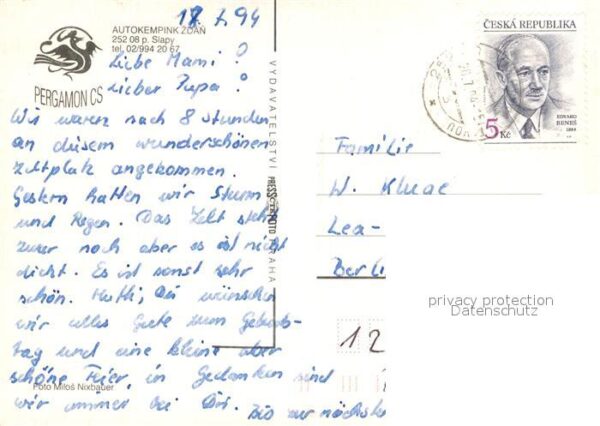 18. 7. 94
AUTOKEMPINK ŽDÁŇ
252 08 p. Slapy
tel. 02/994 20 67
PERGAMON CS
Liebe Mami!
Lieber Papa!
Wir waren nach 8 Stunden
an diesem wunderschönen
Zeltplatz angekommen.
Gestern hatten wir Sturm
und Regen. Das Zelt steht
zwar noch aber es ist nicht
dicht. Es ist sonst sehr
schön. Mutti, Dir wünschen
wir alles Gute zum Geburts-
tag und eine kleine aber
schöne Feier, in Gedanken sind
wir immer bei Dir. Bis zur nächsten
Foto Miloš Nixbauer
VYDAVATELSTVÍ
PRESSFOTO
PRAHA
ČESKÁ REPUBLIKA
EDVARD
BENEŠ
5 Kč
Familie
W. Kluge
Lea-
Berli
privacy protection
Datenschutz
12